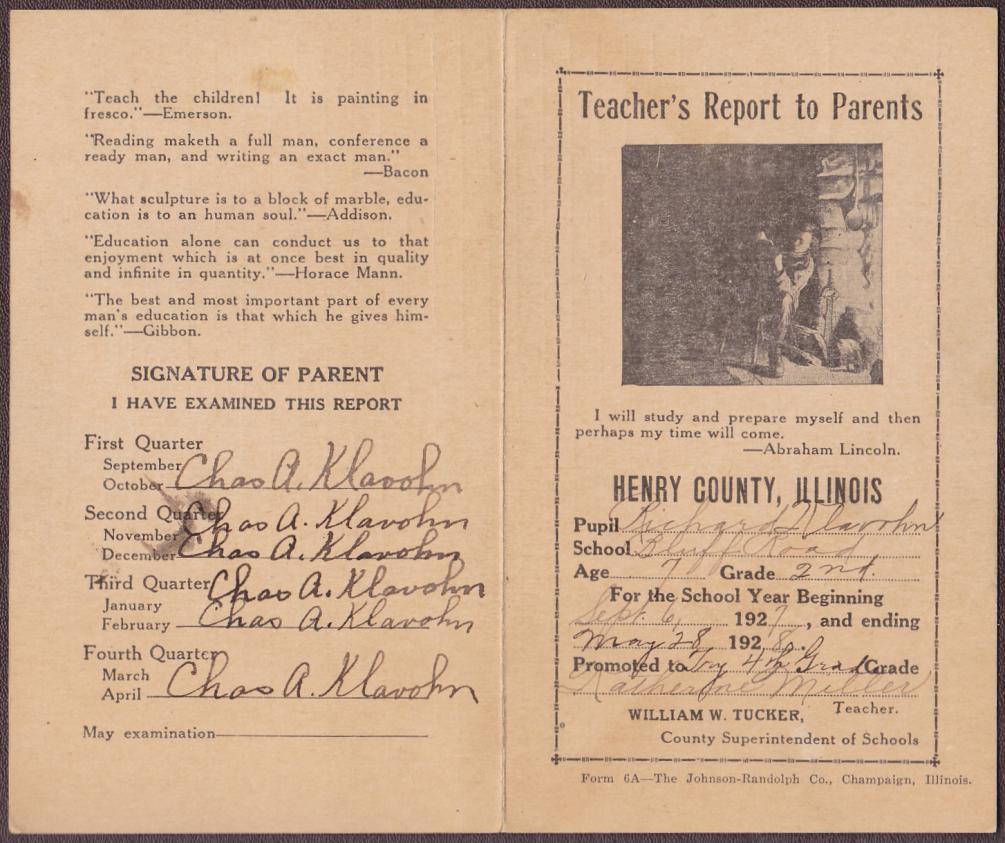 "Teach the children! It is painting in
fresco."—Emerson.
"Reading maketh a full man, conference a
ready man, and writing an exact man."
—Bacon
"What sculpture is to a block of marble, edu-
cation is to an human soul."—Addison.
"Education alone can conduct us to that
enjoyment which is at once best in quality
and infinite in quantity."—Horace Mann.
"The best and most important part of every
man's education is that which he gives him-
self."—Gibbon.
SIGNATURE OF PARENT
I HAVE EXAMINED THIS REPORT
First Quarter
September
October Chas A. Klavohn
Second Quarter Chas A. Klavohn
November
December Chas A. Klavohn
Third Quarter Chas A. Klavohn
January
February Chas A. Klavohn
Fourth Quarter
March
April Chas A. Klavohn
May examination
Teacher's Report to Parents
I will study and prepare myself and then
perhaps my time will come.
—Abraham Lincoln.
HENRY COUNTY, ILLINOIS
Pupil Richard Klavohn
School Bluff Road
Age 7 Grade 2nd.
For the School Year Beginning
Sept. 6, 1927, and ending
May 28 1928.
Promoted to Try 4th Grade Grade
Katherine Miller
Teacher.
WILLIAM W. TUCKER,
County Superintendent of Schools
Form 6A—The Johnson-Randolph Co., Champaign, Illinois.